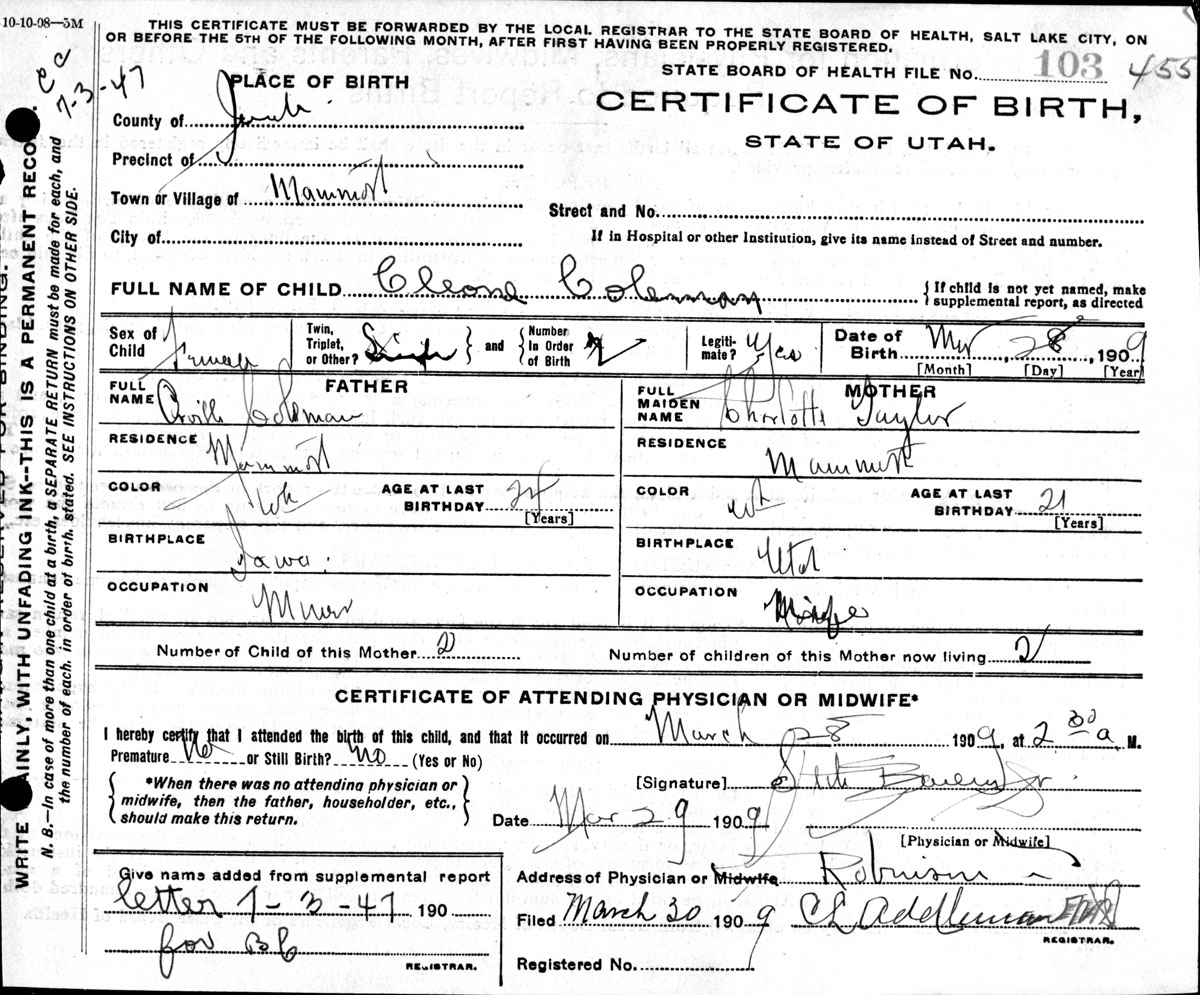 10-10-98—5M
THIS CERTIFICATE MUST BE FORWARDED BY THE LOCAL REGISTRAR TO THE STATE BOARD OF HEALTH, SALT LAKE CITY, ON
OR BEFORE THE 5TH OF THE FOLLOWING MONTH, AFTER FIRST HAVING BEEN PROPERLY REGISTERED.
7-3-47
STATE BOARD OF HEALTH FILE No. 103 455
PLACE OF BIRTH
CERTIFICATE OF BIRTH,
STATE OF UTAH.
County of Juab
Precinct of
Town or Village of Mammoth
Street and No.
City of
If in Hospital or other Institution, give its name instead of Street and number.
FULL NAME OF CHILD Cleone Coleman
{ If child is not yet named, make
supplemental report, as directed
Sex of Child Female
Twin, Triplet, or Other? Single } and { Number In Order of Birth
Legiti-mate? Yes
Date of Birth Mar 28, 1909
[Month] [Day] [Year]
FATHER
FULL NAME Orville Coleman
RESIDENCE Mammoth
COLOR Wh
AGE AT LAST BIRTHDAY
[Years]
BIRTHPLACE Iowa.
OCCUPATION Miner
MOTHER
FULL MAIDEN NAME Charlotte Taylor
RESIDENCE Mammoth
COLOR Wh
AGE AT LAST BIRTHDAY 21
[Years]
BIRTHPLACE Utah
OCCUPATION
Number of Child of this Mother 2
Number of children of this Mother now living 2
CERTIFICATE OF ATTENDING PHYSICIAN OR MIDWIFE*
I hereby certify that I attended the birth of this child, and that it occurred on March 28 1909, at 2 30 a M.
Premature No or Still Birth? No (Yes or No)
{ *When there was no attending physician or
midwife, then the father, householder, etc.,
should make this return. }
[Signature]
Date Mar 29 1909
[Physician or Midwife]
Address of Physician or Midwife Robinson
Filed March 30 1909
REGISTRAR.
Registered No.
Give name added from supplemental report
letter 7-3-47 190
for BC
REGISTRAR.
WRITE PLAINLY, WITH UNFADING INK--THIS IS A PERMANENT RECORD.
N. B.—In case of more than one child at a birth, a SEPARATE RETURN must be made for each, and
the number of each, in order of birth, stated. SEE INSTRUCTIONS ON OTHER SIDE.